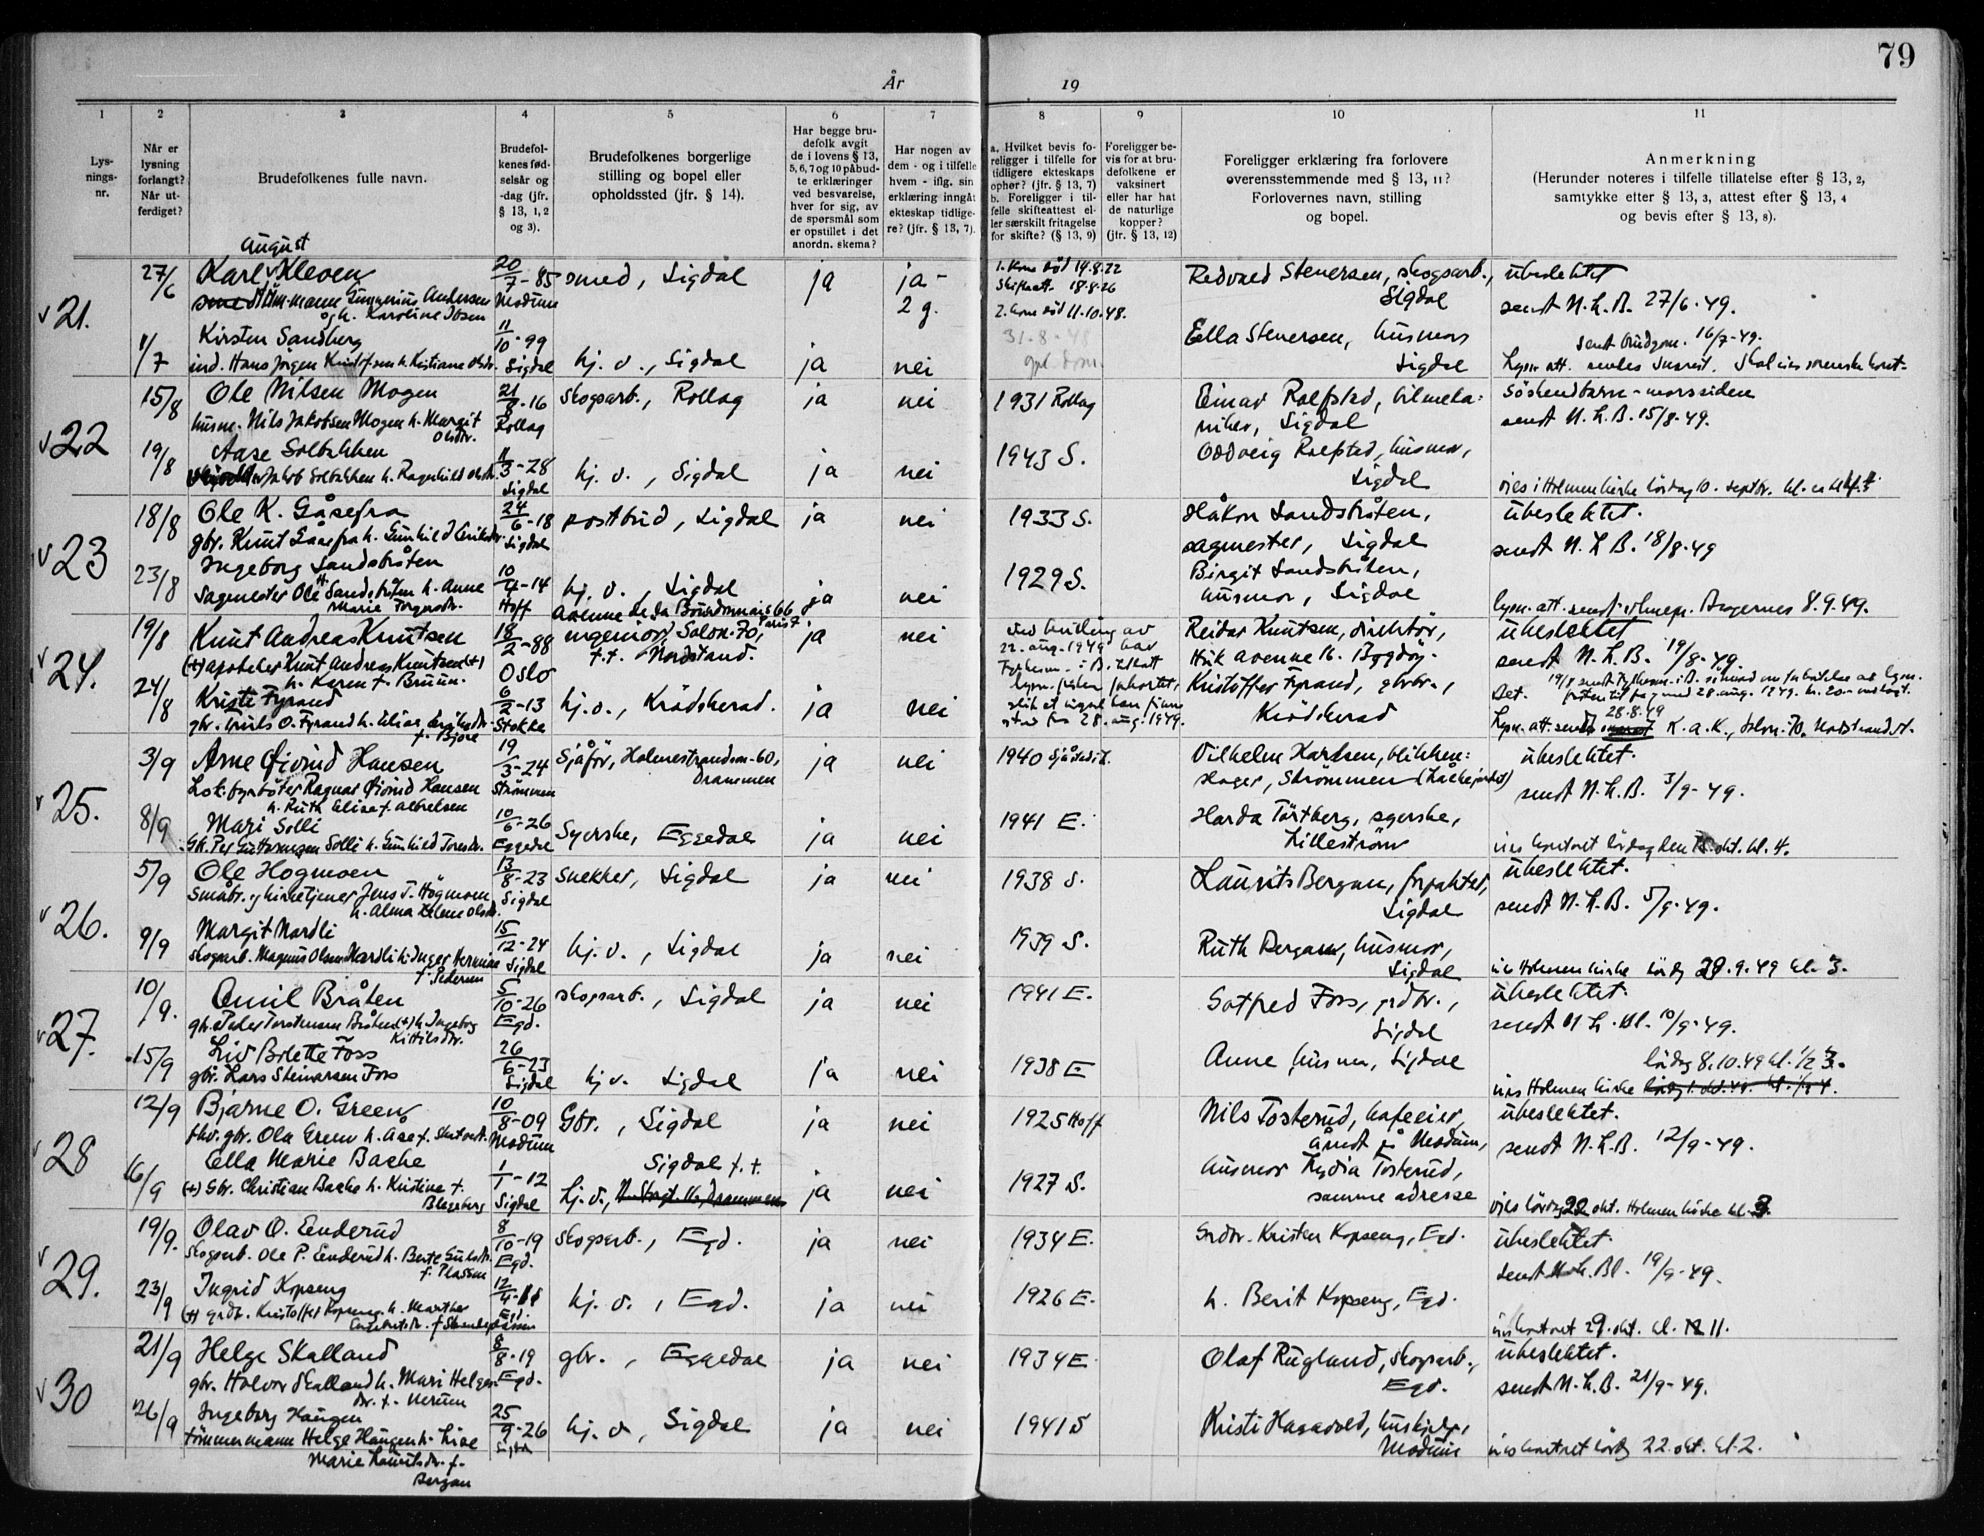 79
År
19
1
2
3
4
5
6
7
8
9
10
11
Lys-
nings-
nr.
Når er
lysning
forlangt?
Når ut-
ferdiget?
Brudefolkenes fulle navn.
Brudefol-
kenes fød-
selsår og
-dag (jfr.
§ 13, 1, 2
og 3).
Brudefolkenes borgerlige
stilling og bopel eller
opholdssted (jfr. § 14).
Har begge bru-
defolk avgit
de i lovens § 13,
5, 6, 7 og 10 påbud-
te erklæringer
ved besvarelse,
hver for sig, av
de spørsmål som
er opstillet i det
anordn. skema?
Har nogen av
dem - og i tilfelle
hvem - iflg. sin
erklæring inngått
ekteskap tidlige-
re? (jfr. § 13, 7).
a. Hvilket bevis fo-
religger i tilfelle for
tidligere ekteskaps
ophør? (jfr. § 13, 7)
b. Foreligger i til-
felle skifteattest el-
ler særskilt fritagelse
for skifte? (§ 13, 9)
Foreligger be-
vis for at bru-
defolkene er
vaksinert
eller har hat
de naturlige
kopper?
(jfr. § 13, 12)
Foreligger erklæring fra forlovere
overensstemmende med § 13, 11?
Forlovernes navn, stilling
og bopel.
Anmerkning
(Herunder noteres i tilfelle tillatelse efter § 13, 2,
samtykke efter § 13, 3, attest efter § 13, 4
og bevis efter § 13, 8).
v 21.
27/6
August
Karl Kleven
Gunnerius Andersen
og h. Karoline Ibsen
20/7-85
Modum
smed, Sigdal
ja
ja -
2 g.
1. kone død 14.8.22
Skifteatt. 18.8.26
2. kone død 11.10.48.
31.8.48
Redvald Stenersen, skogsarb.,
Sigdal
ubeslektet
sendt N.L.B. 27/6-49.
1/7
Kirsten Sandberg
ind. Hans Jørgen Kristofsen h. Kristiane Olsdr.
11/10-99
Sigdal
hj. v., Sigdal
ja
nei
Ella Stenersen, husmor
Sigdal
sendt brudgom. 16/7-49.
v 22
15/8
Ole Nilsen Mogen
husm. Nils Jakobsen Mogen h. Margit
Olsdtr.
21/8-16
Rollag
Skogsarb., Rollag
ja
nei
1931 Rollag
Einar Rolfstad, bilmeka-
niker, Sigdal
Søskendbarn - morssiden
sendt N.L.B. 15/8-49.
19/8
Aase Solbakken
Jakob Solbakken h. Ragnhild Olsdtr.
11/3-28
Sigdal
hj. v., Sigdal
ja
nei
1943 S.
Oddveig Rolfstad, husmor,
Sigdal
vies i Holmen kirke lørdag 10. septbr. kl.
v 23
18/8
Ole K. Gåsefra
gbr. Knut Gåsefra h. Gunhild Eriksdtr.
24/6-18
Sigdal
postbud, Sigdal
ja
nei
1933 S.
Håkon Sandsbråten,
sagmester, Sigdal
ubeslektet.
sendt N.L.B. 18/8-49
23/8
Ingeborg Sandsbråten
Sagmester Ole H. Sandsbråten h. Anne
Marie Torgersdtr.
10/4-14
Hoff
hj. v., Sigdal
ja
nei
1929 S.
Birgit Sandsbråten,
husmor, Sigdal
8.9.49.
v 24.
19/8
Knut Andreas Knutsen
(+) apoteker Knut Andreas Knutsen (+)
h. Karen f. Bruun.
18/2-88
Oslo
Avenue de la Bourdonnais 66
Paris 7
ingeniør, Solvn. 70,
f.t. Nordstrand.
ja
nei
22. aug. 1949 har
28. aug. 1949.
Reidar Knutsen, direktør,
Huk avenue 16. Bygdøy.
ubeslektet
sendt N.L.B. 19/8-49.
24/8
Kristi Fyrand
gbr. Truls O. Fyrand h. Eline Eriksdtr.
f. Bjøre
6/2-13
Stokke
hj. v., Krødsherad.
ja
nei
Kristoffer Fyrand, gbr.,
Krødsherad
28.8.49
v 25.
3/9
Arne Øivind Hansen
Lok. fyrbøter Ragnar Øivind Hansen
h. Ruth Elise f. Albretsen
19/3-24
Strømmen
Sjåfør, Holmestrandsvn. 60,
Drammen
ja
nei
1940
Vilhelm Karlsen, blikken-
slager, Strømmen
ubeslektet.
sendt N.L.B. 3/9-49.
8/9
Mari Solli
Gk. Per Guttormsen Solli h. Gunhild Toresdtr.
10/6-26
Eggedal
Syerske, Eggedal
ja
nei
1941 E.
Harda Tørtberg, syerske,
Lillestrøm
vies kontoret lørdag den okt. kl. 4.
v 26.
5/9
Ole Hogmoen
Småbr. og kirketjener Jens T. Høgmoen
h. Alma Helene Olsdtr.
13/8-23
Sigdal
snekker, Sigdal
ja
nei
1938 S.
Laurits Bergan, forpakter,
Sigdal
ubeslektet.
sendt N.L.B. 5/9-49.
9/9
Margit Nardli
Skogsarb. Magnus Olsen Nardli h. Inger Hermine
f. Pedersen
15/12-24
Sigdal
hj. v., Sigdal
ja
nei
1939 S.
Ruth Bergan, husmor,
Sigdal
vies Holmen kirke lørdag 29.9.49 kl. 3.
v 27.
10/9.
Emil Bråten
gbr. Peder Torstensen Bråten (+) h. Ingeborg
Kittilsdtr.
5/10-26
Egd.
skogsarb., Sigdal
ja
nei
1941 E.
Gotfred Foss, grdbr.,
Sigdal
ubeslektet.
sendt N.L.Bl. 10/9-49.
15/9
Liv Bolette Foss
gbr. Lars Steinarsen Foss
26/6-23
Sigdal
hj v. Sigdal
ja
nei
1938 E
Anne husmor, Sigdal
lørdag 8.10.49 kl. 1/2 3.
vies Holmen kirke
v 28
12/9
Bjarne O. Green
fhv. gbr. Ola Green h. Åse f. Skatvedt.
10/8-09
Modum
Gbr., Sigdal
ja
nei
1925 Hoff
Nils Tosterud, kafeeier,
Åmot på Modum,
ubeslektet.
sendt N.L.B. 12/9-49.
16/9
Ella Marie Bache
(+) Gbr. Christian Bache h. Kristine f.
Blegeberg
1/1-12
Sigdal
Sigdal f.t.
hj. v.,
ja
nei
1927 S.
husmor Lydia Tosterud,
samme adresse
vies lørdag 22 okt. Holmen kirke kl. 3.
v 29.
19/9.
Olav O. Enderud
Skogsarb. Ole P. Enderud h. Berte Gulsdtr.
f. Plassen
8/10-19
Egd.
Skogsarb., Egd.
ja
nei
1934 E.
Grdbr. Kristen Kopseng, Egd.
ubeslektet.
sendt N.L.Bl. 19/9-49.
23/9
Ingrid Kopseng
(+) grdb. Kristoffer Kopseng h. Marthe
12/4-11
Egd.
hj. v., Egd.
ja
nei
1926 E.
h. Berit Kopseng, Egd.
vies kontoret 29. okt. kl. 11.
v 30
21/9
Helge Skalland
gbr. Halvor Skalland h. Mari Helges-
dr. f. Nerum
8/8-19
Egd.
gbr., Eggedal
ja
nei
1934 E
Olaf Rugland, skogsarb.,
Egd.
ubeslektet.
sendt N.L.B. 21/9-49.
26/9
Ingeborg Haugen
tømmermann Helge Haugen h. Lise
Marie Lauritsdtr. f.
Bergan
25/9-26
Sigdal
hj. v., Sigdal
ja
nei
1941 S
Kristi Haavold, hushjelp,
Modum
vies kontoret lørdag 22. okt. kl. 2.